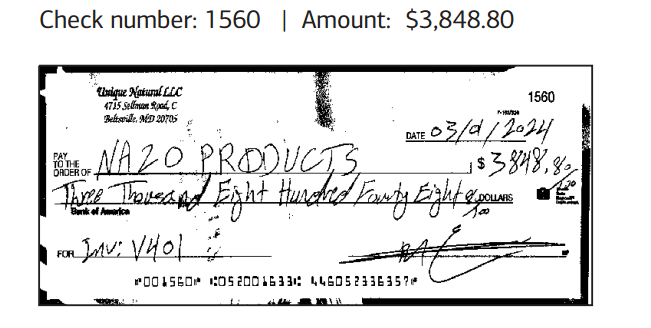 Check number: 1560 | Amount: $3,848.80
Unique Natural LLC
4715 Sellman Road, C
Beltsville, MD 20705
1560
DATE 03/01/2024
PAY TO THE ORDER OF NAZO PRODUCTS $3848.80
Three Thousand Eight Hundred Fourty Eight & DOLLARS
Bank of America
FOR Inv: V401
⑈001560⑈ ⑆052001633⑆ 446052336357⑈